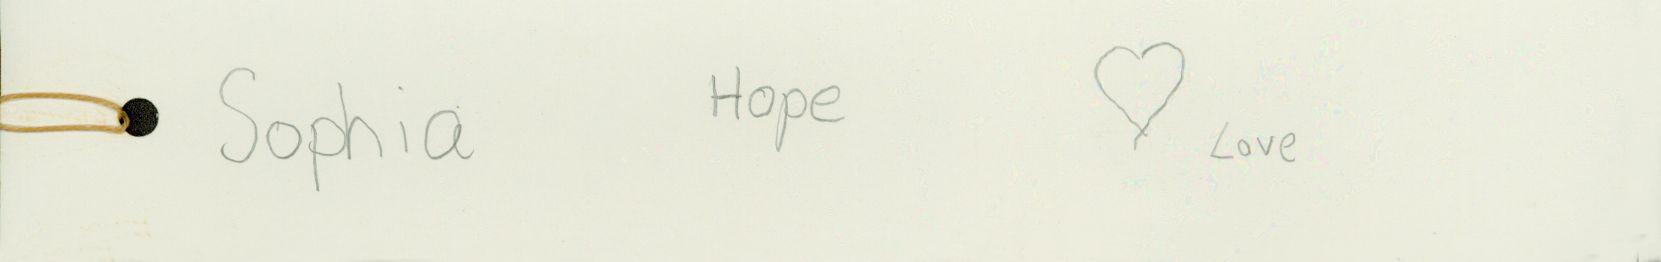 Sophia Hope Love